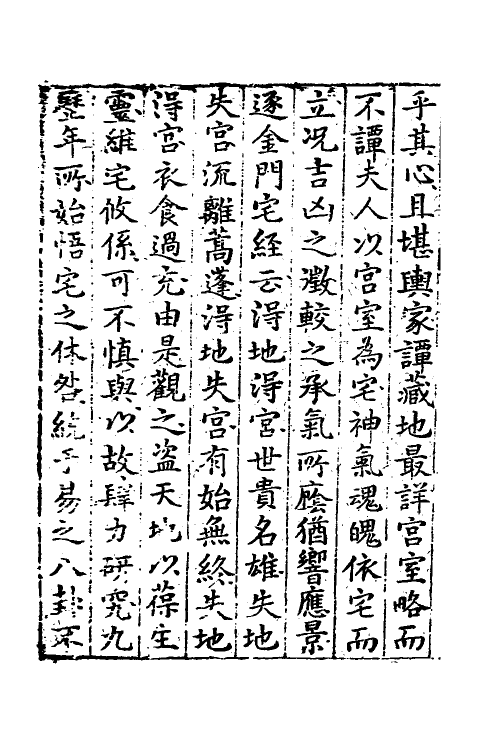 乎其心且堪輿家譚藏地最詳宮室略而
不譚夫人以宮室為宅神氣魂魄依宅而
立况吉凶之徵較之承氣所廕猶響應景
逐金門宅經云得地得宮世貴名雄失地
失宮流離蒿蓬得地失宮有始無終失地
得宮衣食過充由是觀之盗天地以葆生
靈維宅攸係可不慎與以故殫力研究九
歷年所始悟宅之体咎統乎易之八卦不